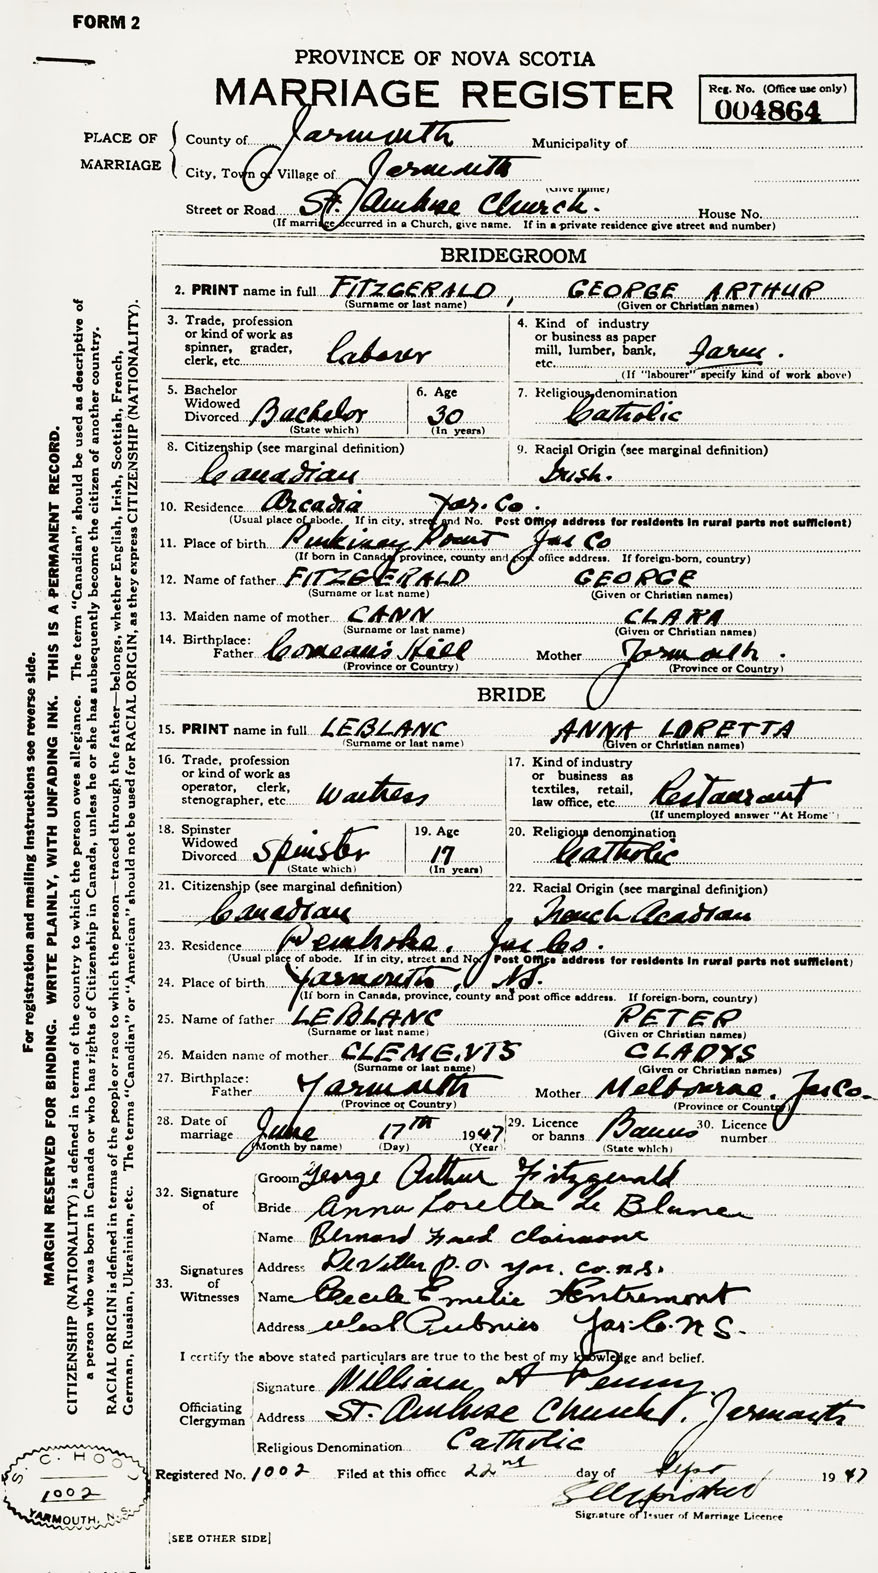 FORM 2
PROVINCE OF NOVA SCOTIA
MARRIAGE REGISTER
Reg. No. (Office use only)
004864
PLACE OF MARRIAGE
County of Yarmouth Municipality of
City, Town or Village of Yarmouth
(Give name)
Street or Road St. Ambrose Church. House No.
(If marriage occurred in a Church, give name. If in a private residence give street and number)
BRIDEGROOM
2. PRINT name in full FITZGERALD, GEORGE ARTHUR
(Surname or last name) (Given or Christian names)
3. Trade, profession or kind of work as spinner, grader, clerk, etc. laborer
4. Kind of industry or business as paper mill, lumber, bank, etc. Farm.
(If "labourer" specify kind of work above)
5. Bachelor Widowed Divorced Bachelor
(State which)
6. Age 30
(In years)
7. Religious denomination Catholic
8. Citizenship (see marginal definition) Canadian
9. Racial Origin (see marginal definition) Irish.
10. Residence Arcadia Yar. Co.
(Usual place of abode. If in city, street and No. Post Office address for residents in rural parts not sufficient)
11. Place of birth Pinkney Point Yar Co
(If born in Canada, province, county and post office address. If foreign-born, country)
12. Name of father FITZGERALD GEORGE
(Surname or last name) (Given or Christian names)
13. Maiden name of mother CANN CLARA
(Surname or last name) (Given or Christian names)
14. Birthplace: Father Comeau's Hill Mother Yarmouth.
(Province or Country) (Province or Country)
BRIDE
15. PRINT name in full LEBLANC ANNA LORETTA
(Surname or last name) (Given or Christian names)
16. Trade, profession or kind of work as operator, clerk, stenographer, etc. Waitress
17. Kind of industry or business as textiles, retail, law office, etc. Restaurant
(If unemployed answer "At Home")
18. Spinster Widowed Divorced Spinster
(State which)
19. Age 17
(In years)
20. Religious denomination Catholic
21. Citizenship (see marginal definition) Canadian
22. Racial Origin (see marginal definition) French Acadian
23. Residence Pembroke, Yar Co.
(Usual place of abode. If in city, street and No. Post Office address for residents in rural parts not sufficient)
24. Place of birth Yarmouth, N.S.
(If born in Canada, province, county and post office address. If foreign-born, country)
25. Name of father LEBLANC PETER
(Surname or last name) (Given or Christian names)
26. Maiden name of mother CLEMENTS GLADYS
(Surname or last name) (Given or Christian names)
27. Birthplace: Father Yarmouth Mother Melbourne, Yar Co.
(Province or Country) (Province or Country)
28. Date of marriage June 17th 1947
(Month by name) (Day) (Year)
29. Licence or banns Banns
(State which)
30. Licence number
32. Signature of
Groom George Arthur Fitzgerald
Bride Anna Loretta Le Blanc
33. Signatures of Witnesses
Name Bernard Fred Clairmont
Address P.O. Yar. Co. N.S.
Name Cecile Emelie Dentremont
Address West Pubnico Yar. Co. N S.
I certify the above stated particulars are true to the best of my knowledge and belief.
Officiating Clergyman
Signature William A Penny
Address St. Ambrose Church, Yarmouth
Religious Denomination Catholic
Registered No. 1002 Filed at this office 22nd day of Sept 1947
Signature of Issuer of Marriage Licence
[SEE OTHER SIDE]
S. C. HOOD
1002
YARMOUTH, N.S.
For registration and mailing instructions see reverse side.
MARGIN RESERVED FOR BINDING. WRITE PLAINLY, WITH UNFADING INK. THIS IS A PERMANENT RECORD.
CITIZENSHIP (NATIONALITY) is defined in terms of the country to which the person owes allegiance. The term "Canadian" should be used as descriptive of
a person who was born in Canada or who has rights of Citizenship in Canada, unless he or she has subsequently become the citizen of another country.
RACIAL ORIGIN is defined in terms of the people or race to which the person—traced through the father—belongs, whether English, Irish, Scottish, French,
German, Russian, Ukrainian, etc. The terms "Canadian" or "American" should not be used for RACIAL ORIGIN, as they express CITIZENSHIP (NATIONALITY).